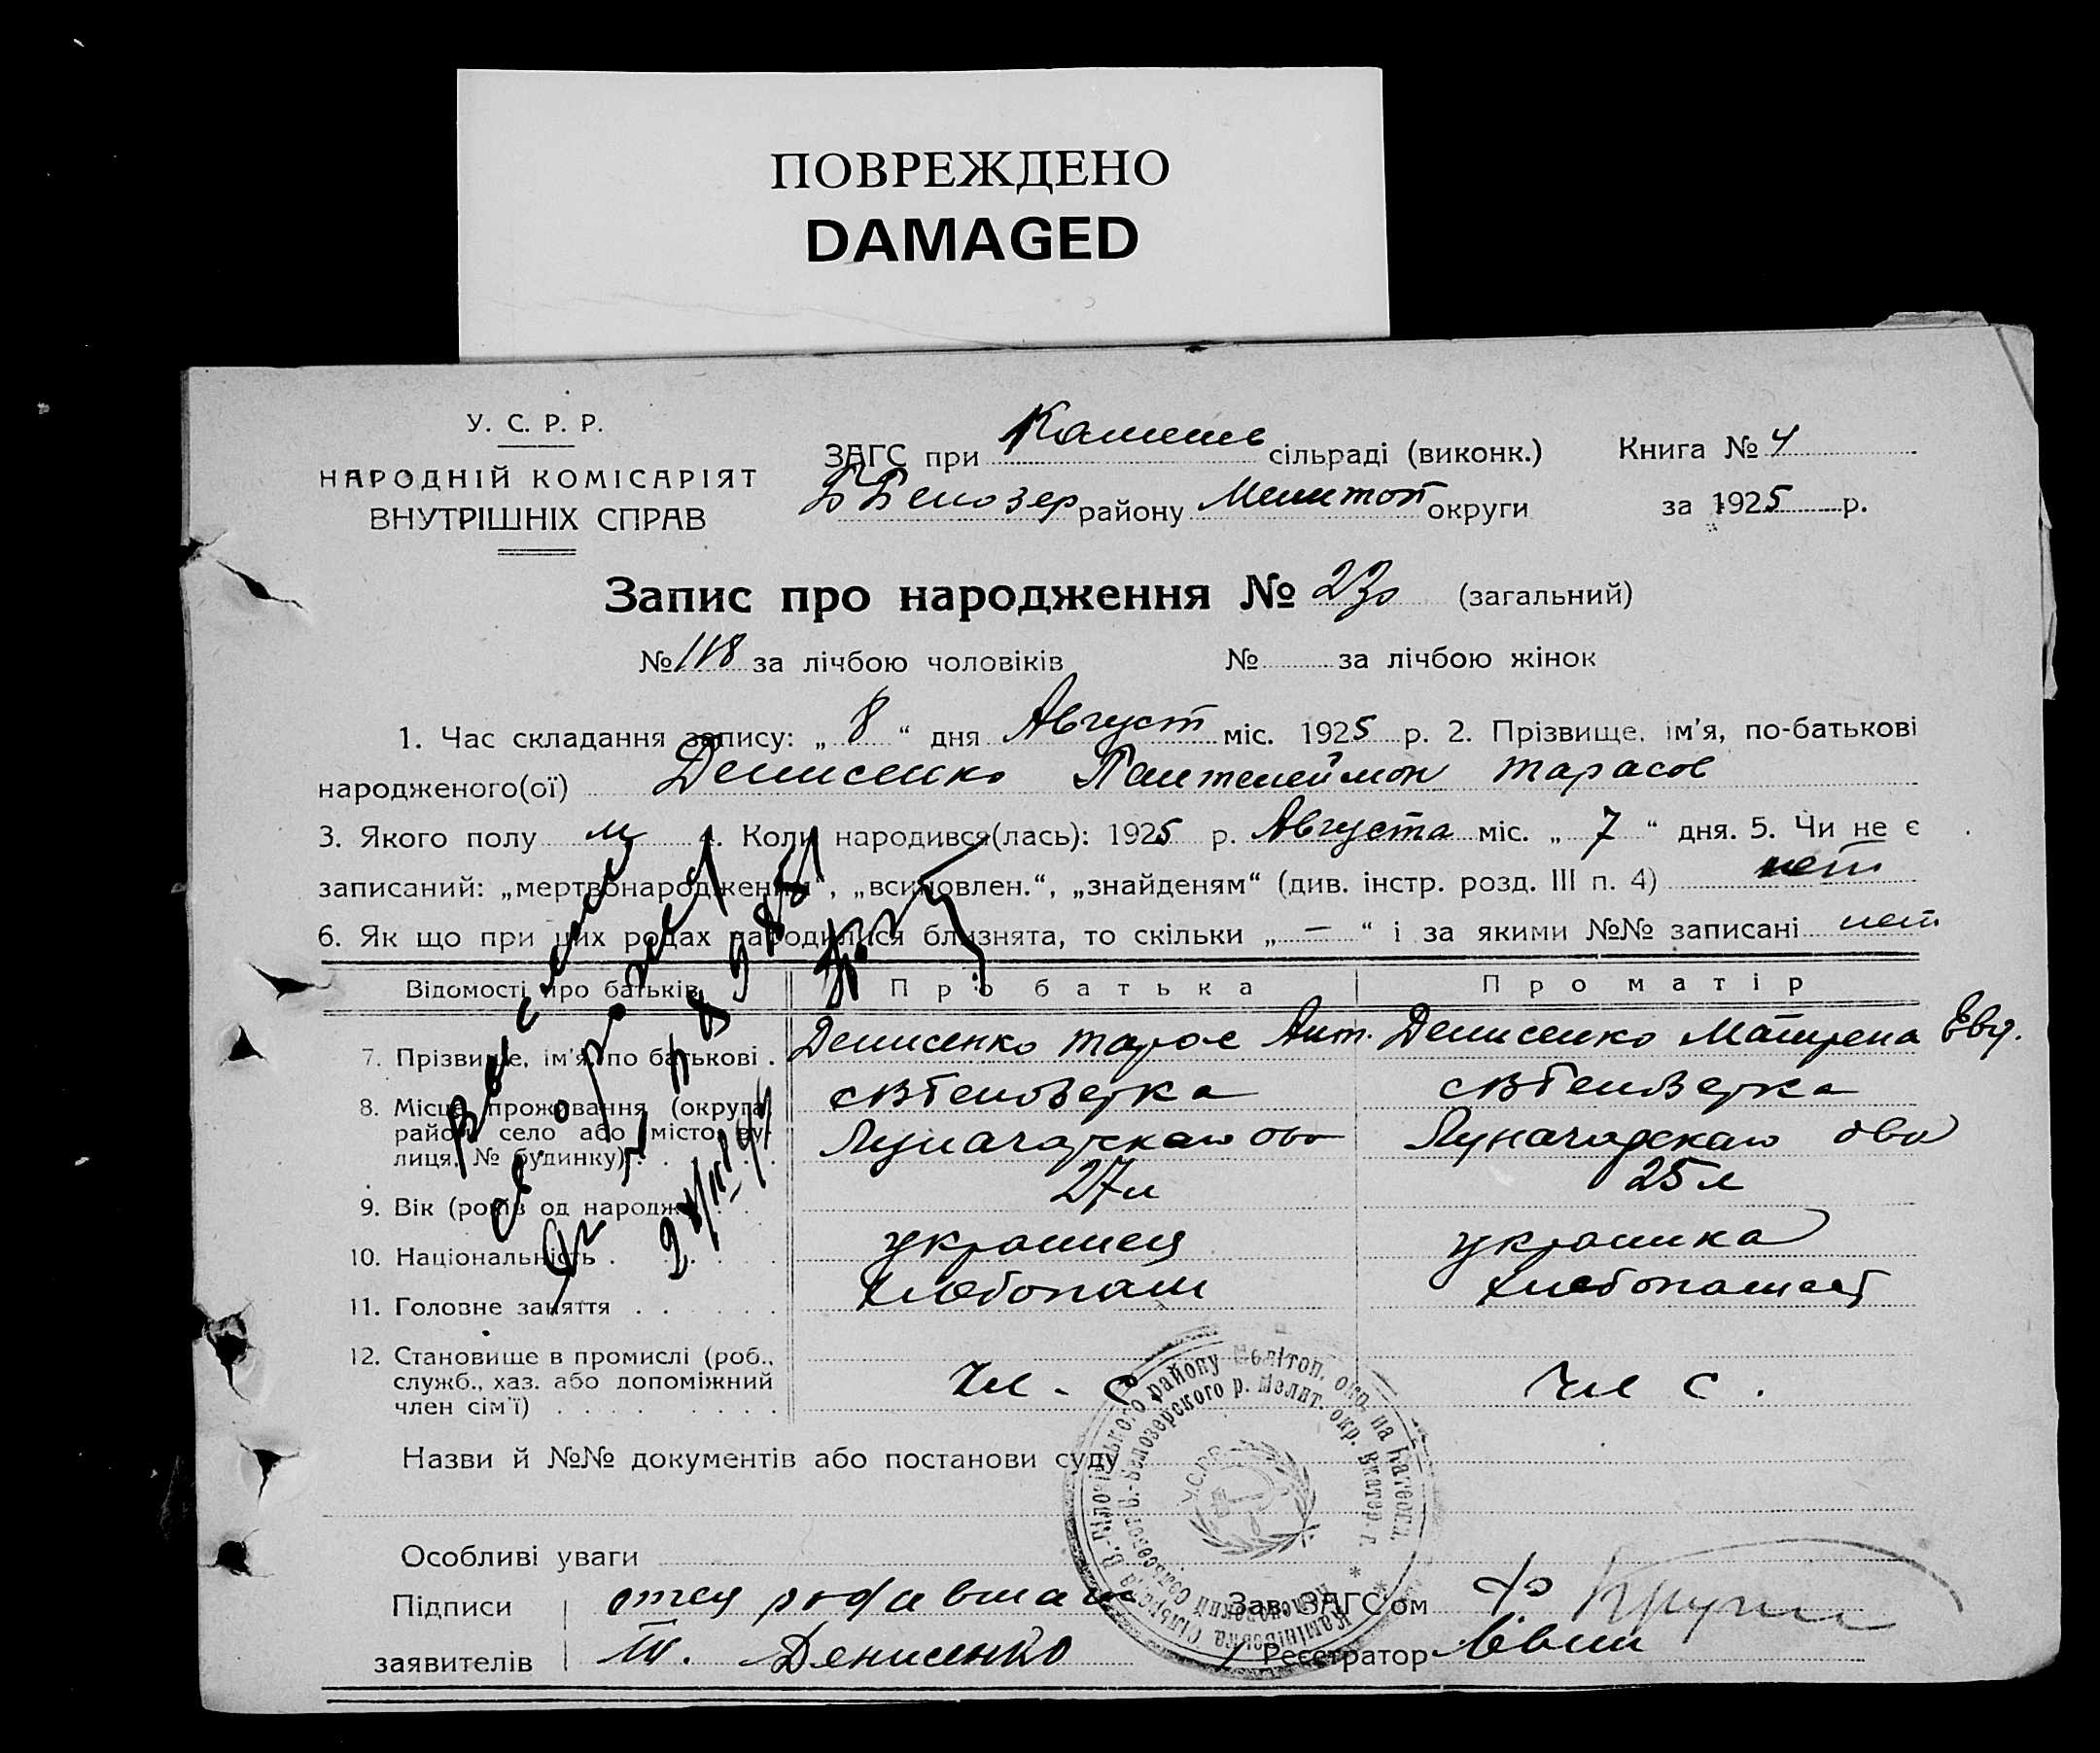 ПОВРЕЖДЕНО
DAMAGED
У. С. Р. Р.
НАРОДНІЙ КОМІСАРІЯТ
ВНУТРІШНІХ СПРАВ
ЗАГС при Каменс сільраді (виконк.)
Б Белозер району Мелитоп округи
Книга № 4
за 1925 р.
Запис про народження № 230 (загальний)
№ 118 за лічбою чоловіків № за лічбою жінок
1. Час складання запису: „ 8 “ дня Август міс. 1925 р. 2. Прізвище, ім'я, по-батькові
народженого(ої) Денисенко Пантелеймон Тарасов
3. Якого полу м 4. Коли народився(лась): 1925 р. Августа міс. „ 7 “ дня. 5. Чи не є
записаний: „мертвонародженим“, „всиновлен.“, „знайденям“ (див. інстр. розд. III п. 4) нет
6. Як що при цих родах народилися близнята, то скільки „ — “ і за якими №№ записані нет
Відомості про батьків Про батька Про матір
7. Прізвище, ім'я, по батькові . Денисенко Тарас Ант. Денисенко Матрена Евд.
8. Місце проживання (округа,
район, село або місто, ву-
лиця, № будинку) . Луначарскаго ова Луначарскаго ова
9. Вік (років од народж.) 27 л 25 л
10. Національність . украинец украинка
11. Головне заняття . хлебопаш хлебопашест
12. Становище в промислі (роб.,
служб., хаз. або допоміжний
член сім'ї) . Чл - с Чл с .
Назви й №№ документів або постанови суду
Особливі уваги
Підписи отец
заявителів Т. Денисенко
Зав. ЗАГС'ом
Реєстратор
У.С.Р.Р.